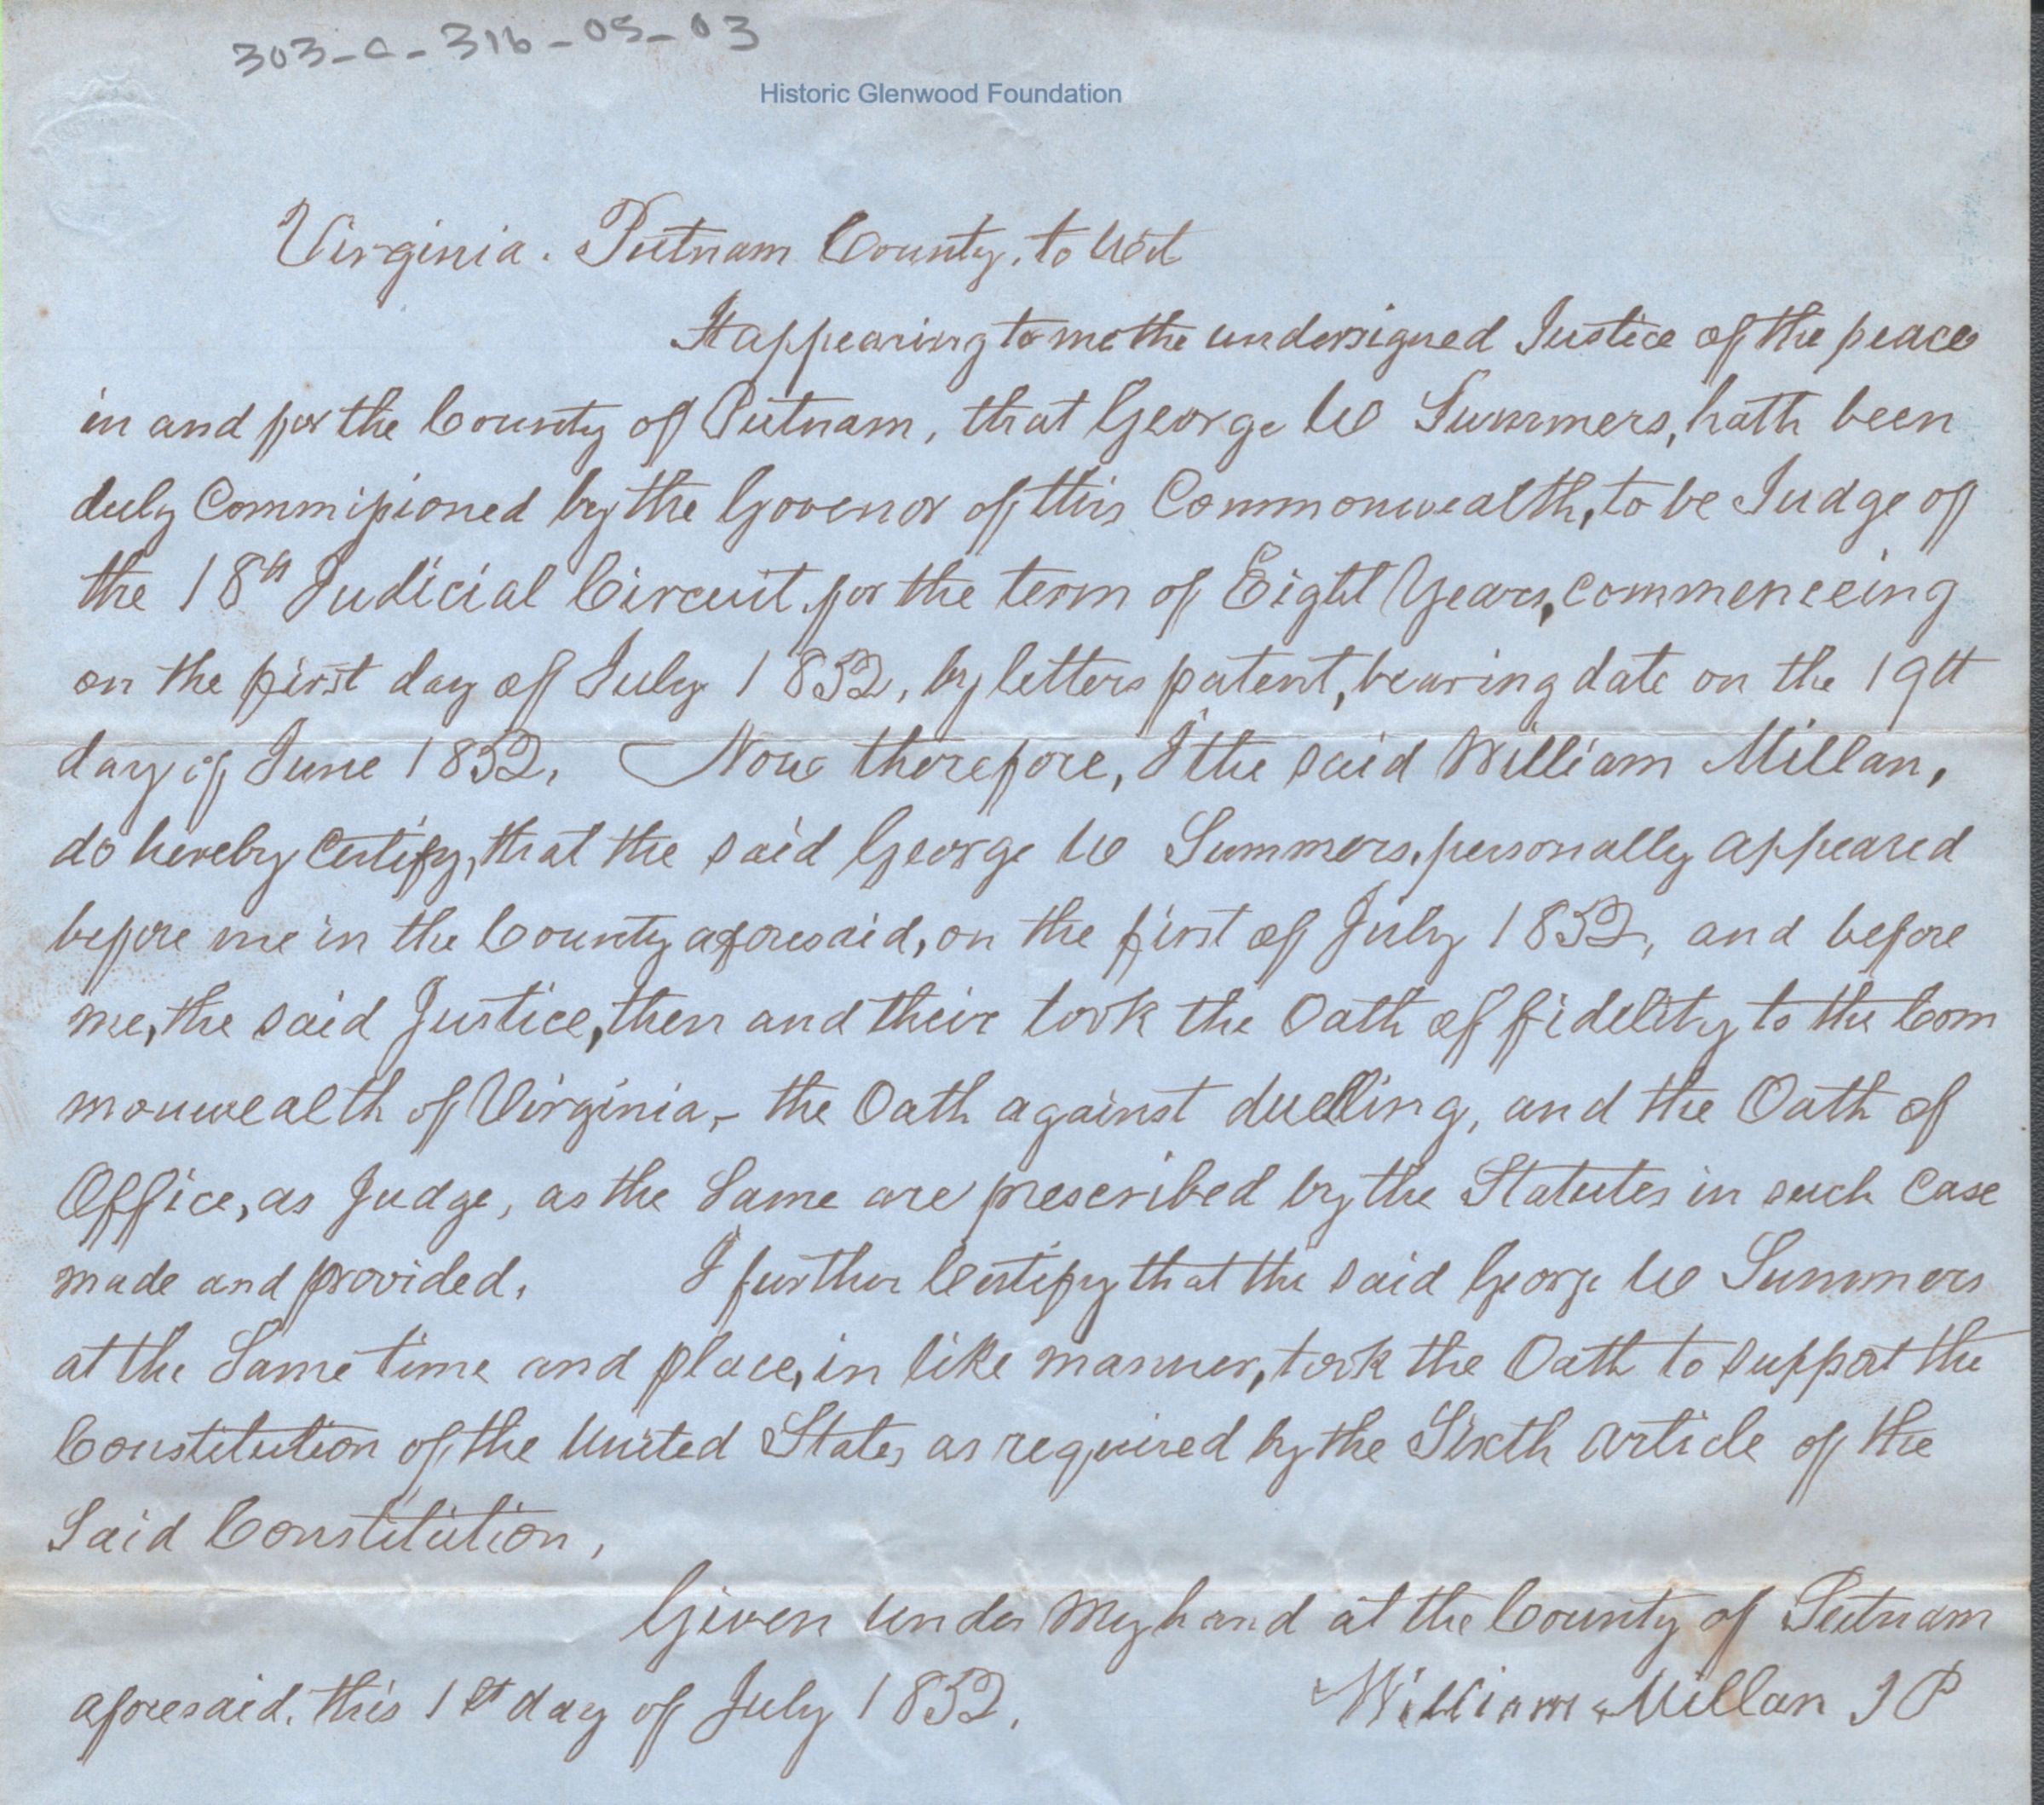 303-C-316-05-03
Historic Glenwood Foundation
Virginia. Putnam County, to wit
It appearing to me the undersigned Justice of the peace
in and for the County of Putnam, that George W Summers, hath been
duly Commissioned by the Govenor of this Commonwealth, to be Judge of
the 18th Judicial Circuit, for the term of Eight Years, commenceing
on the first day of July 1852, by letters patent, bearing date on the 19th
day of June 1852. Now therefore, I the said William Millan,
do hereby Certify, that the said George W Summers, personally appeared
before me in the County aforesaid, on the first of July 1852, and before
me, the said Justice, then and their took the Oath of fidelity to the Com
monwealth of Virginia, - the Oath against duelling, and the Oath of
Office, as Judge, as the Same are prescribed by the Statutes in such Case
made and provided. I further Certify that the said George W Summers
at the Same time and place, in like manner, took the Oath to support the
Constitution of the United States as required by the Sixth Article of the
Said Constitution,
Given under my hand at the County of Putnam
aforesaid, this 1st day of July 1852. William Millan JP